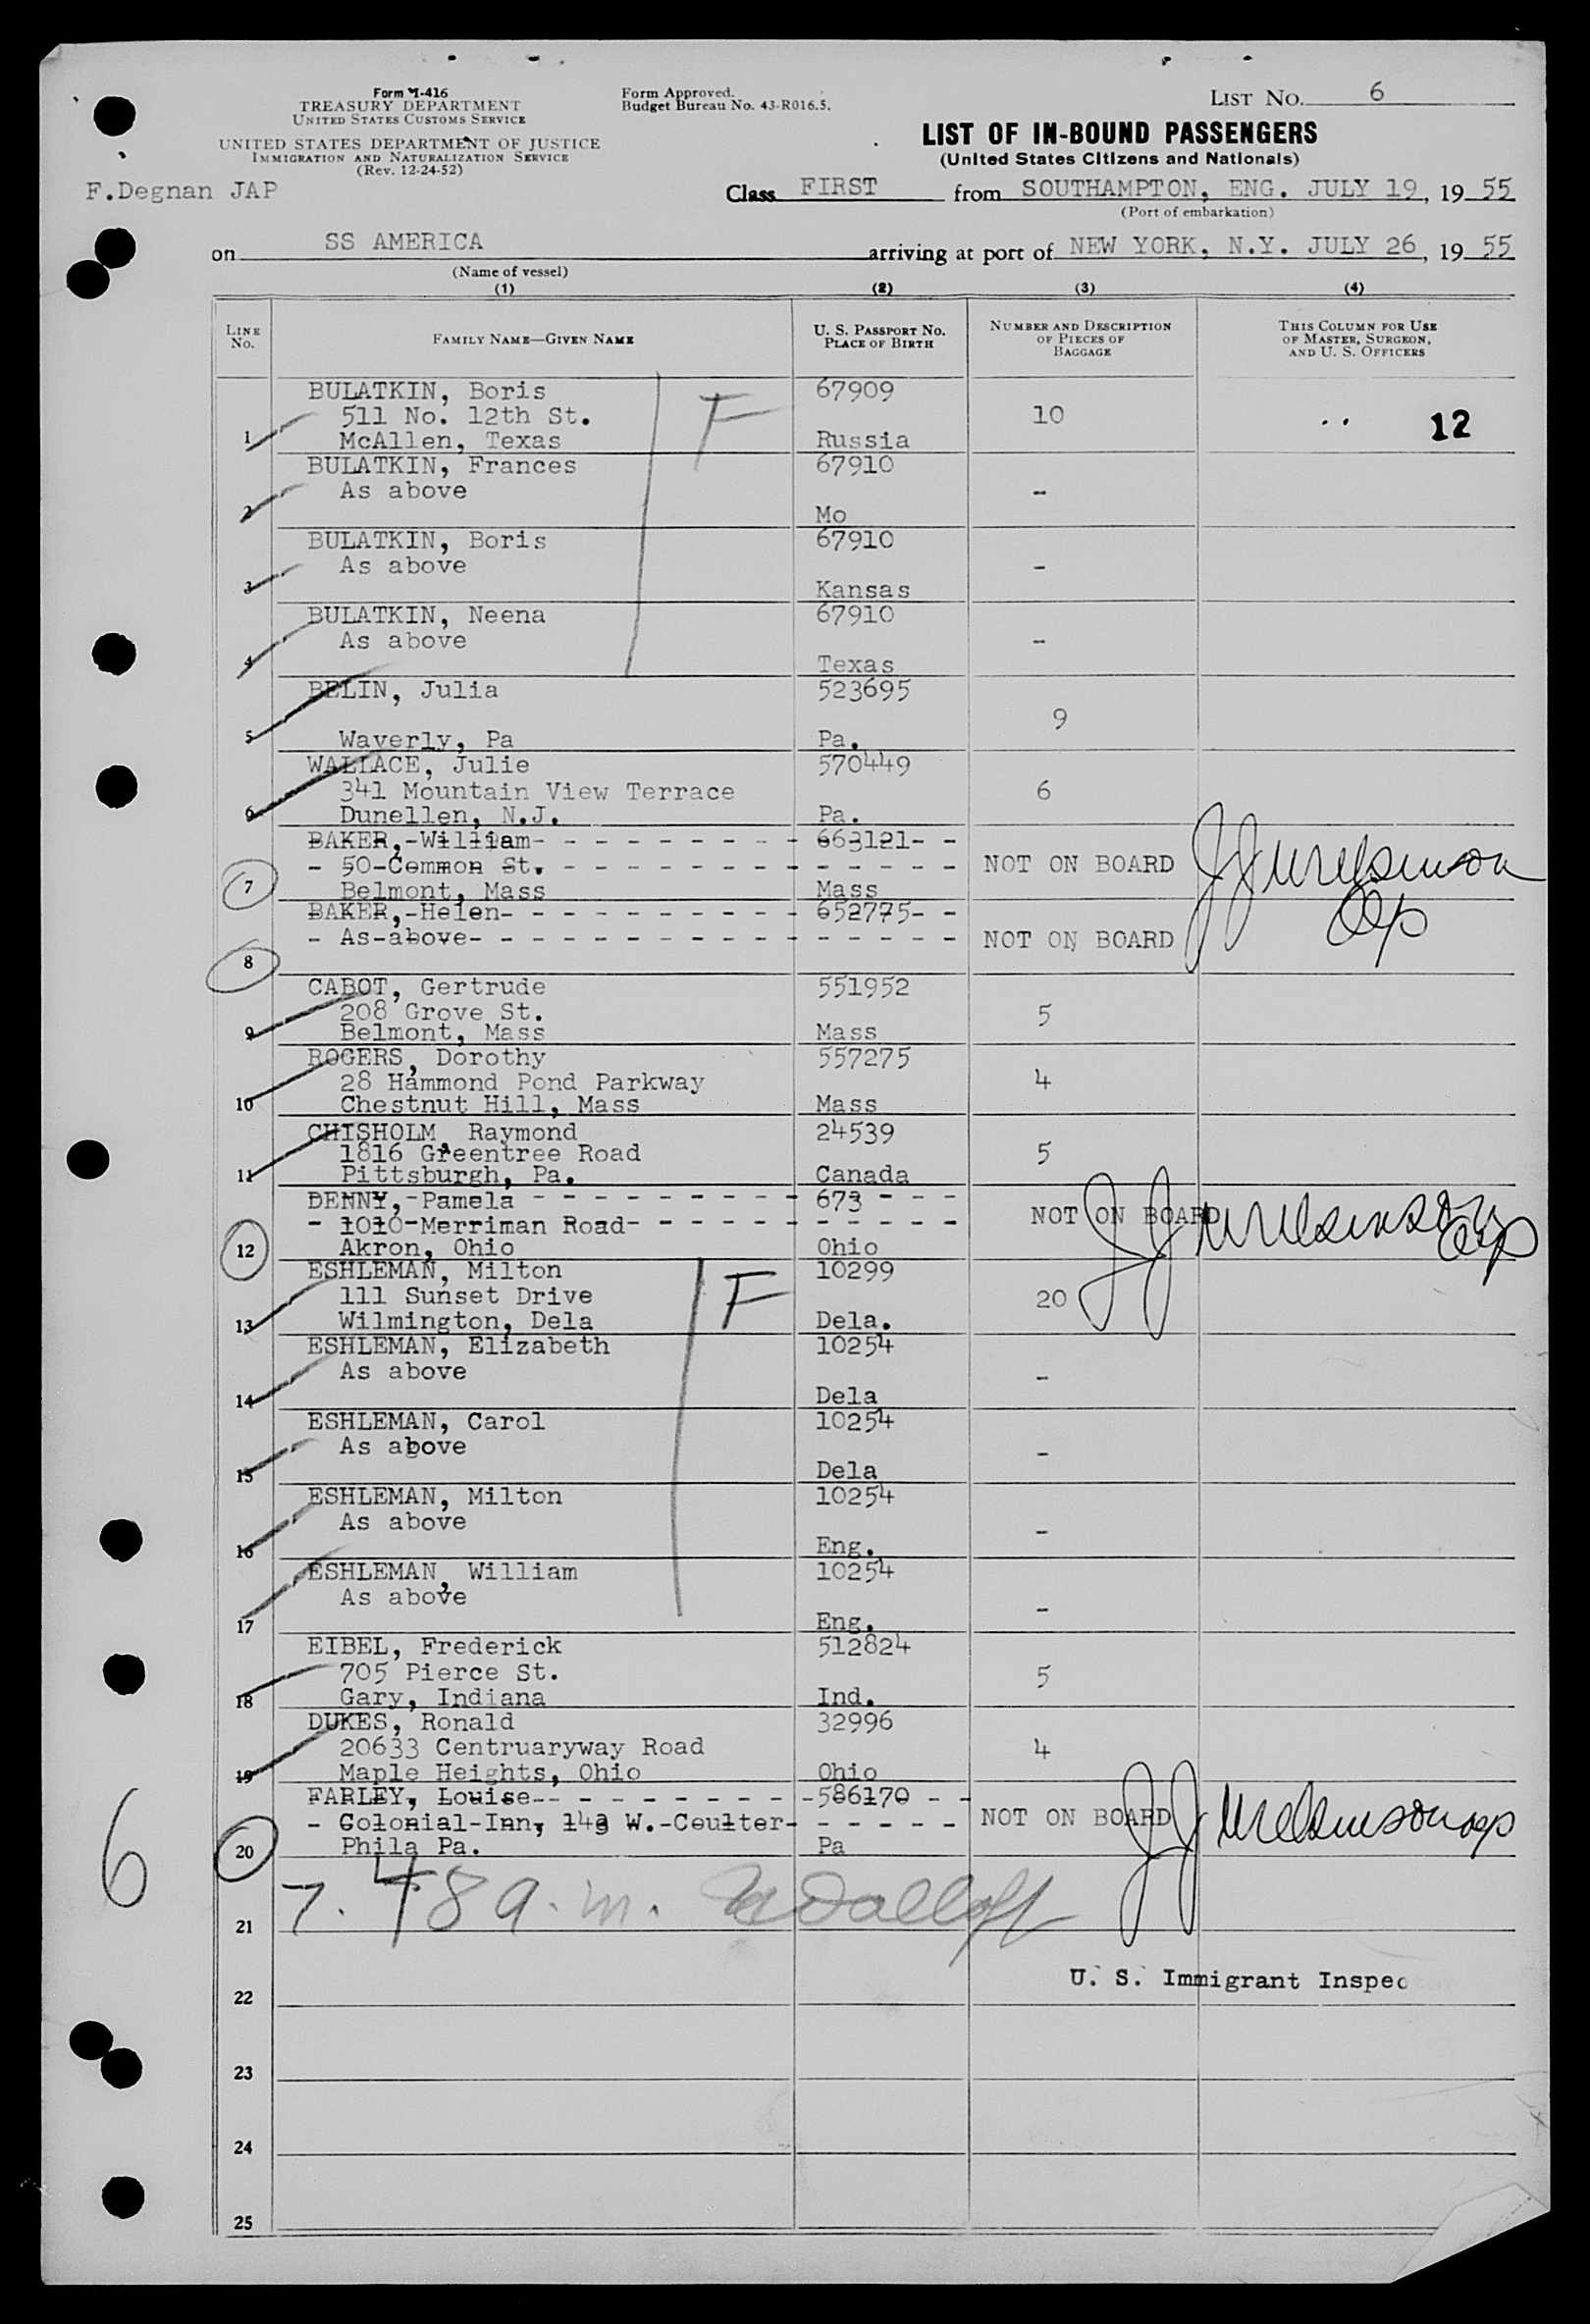 Form I-416
TREASURY DEPARTMENT
UNITED STATES CUSTOMS SERVICE
UNITED STATES DEPARTMENT OF JUSTICE
IMMIGRATION AND NATURALIZATION SERVICE
(Rev. 12-24-52)
Form Approved.
Budget Bureau No. 43-R016.5.
LIST NO. 6
LIST OF IN-BOUND PASSENGERS
(United States Citizens and Nationals)
F.Degnan JAP
Class FIRST from SOUTHAMPTON, ENG. JULY 19, 1955
(Port of embarkation)
on SS AMERICA arriving at port of NEW YORK, N.Y. JULY 26, 1955
(Name of vessel)
(1) (2) (3) (4)
LINE NO. FAMILY NAME—GIVEN NAME U. S. PASSPORT NO. PLACE OF BIRTH NUMBER AND DESCRIPTION OF PIECES OF BAGGAGE THIS COLUMN FOR USE OF MASTER, SURGEON, AND U. S. OFFICERS
BULATKIN, Boris 67909
511 No. 12th St. F 10 12
1 McAllen, Texas Russia
BULATKIN, Frances 67910
As above -
2 Mo
BULATKIN, Boris 67910
As above -
3 Kansas
BULATKIN, Neena 67910
As above -
4 Texas
BELIN, Julia 523695
9
5 Waverly, Pa Pa.
WALLACE, Julie 570449
341 Mountain View Terrace 6
6 Dunellen, N.J. Pa.
BAKER,-William- - - - - - - - - - 663121- -
- 50-Common St. - - - - - - - - - - - - - NOT ON BOARD
7 Belmont, Mass Mass
BAKER,-Helen- - - - - - - - - - - 652775- -
- As-above- - - - - - - - - - - - - - - - NOT ON BOARD
8
CABOT, Gertrude 551952
208 Grove St. 5
9 Belmont, Mass Mass
ROGERS, Dorothy 557275
28 Hammond Pond Parkway 4
10 Chestnut Hill, Mass Mass
CHISHOLM, Raymond 24539
1816 Greentree Road 5
11 Pittsburgh, Pa. Canada
DENNY,-Pamela - - - - - - - - - - 673 - - -
- 1010-Merriman Road- - - - - - - - - - - NOT ON BOARD
12 Akron, Ohio Ohio
ESHLEMAN, Milton 10299
111 Sunset Drive F 20
13 Wilmington, Dela Dela.
ESHLEMAN, Elizabeth 10254
As above -
14 Dela
ESHLEMAN, Carol 10254
As above -
15 Dela
ESHLEMAN, Milton 10254
As above -
16 Eng.
ESHLEMAN, William 10254
As above -
17 Eng.
EIBEL, Frederick 512824
705 Pierce St. 5
18 Gary, Indiana Ind.
DUKES, Ronald 32996
20633 Centruaryway Road 4
19 Maple Heights, Ohio Ohio
FARLEY, Louise- - - - - - - - - -586170 - -
- Colonial-Inn, W.-Coulter- - - - - - NOT ON BOARD
20 Phila Pa. Pa
6
21 7.48 a.m.
U. S. Immigrant Inspec
22
23
24
25